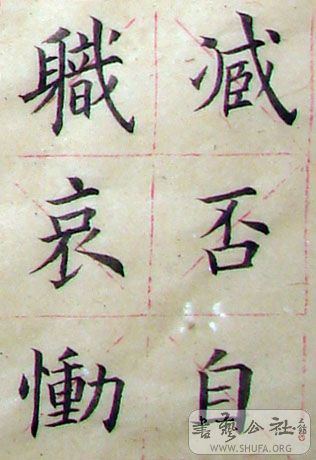 臧否自
軄哀慟
書藝公社
WWW.SHUFA.ORG